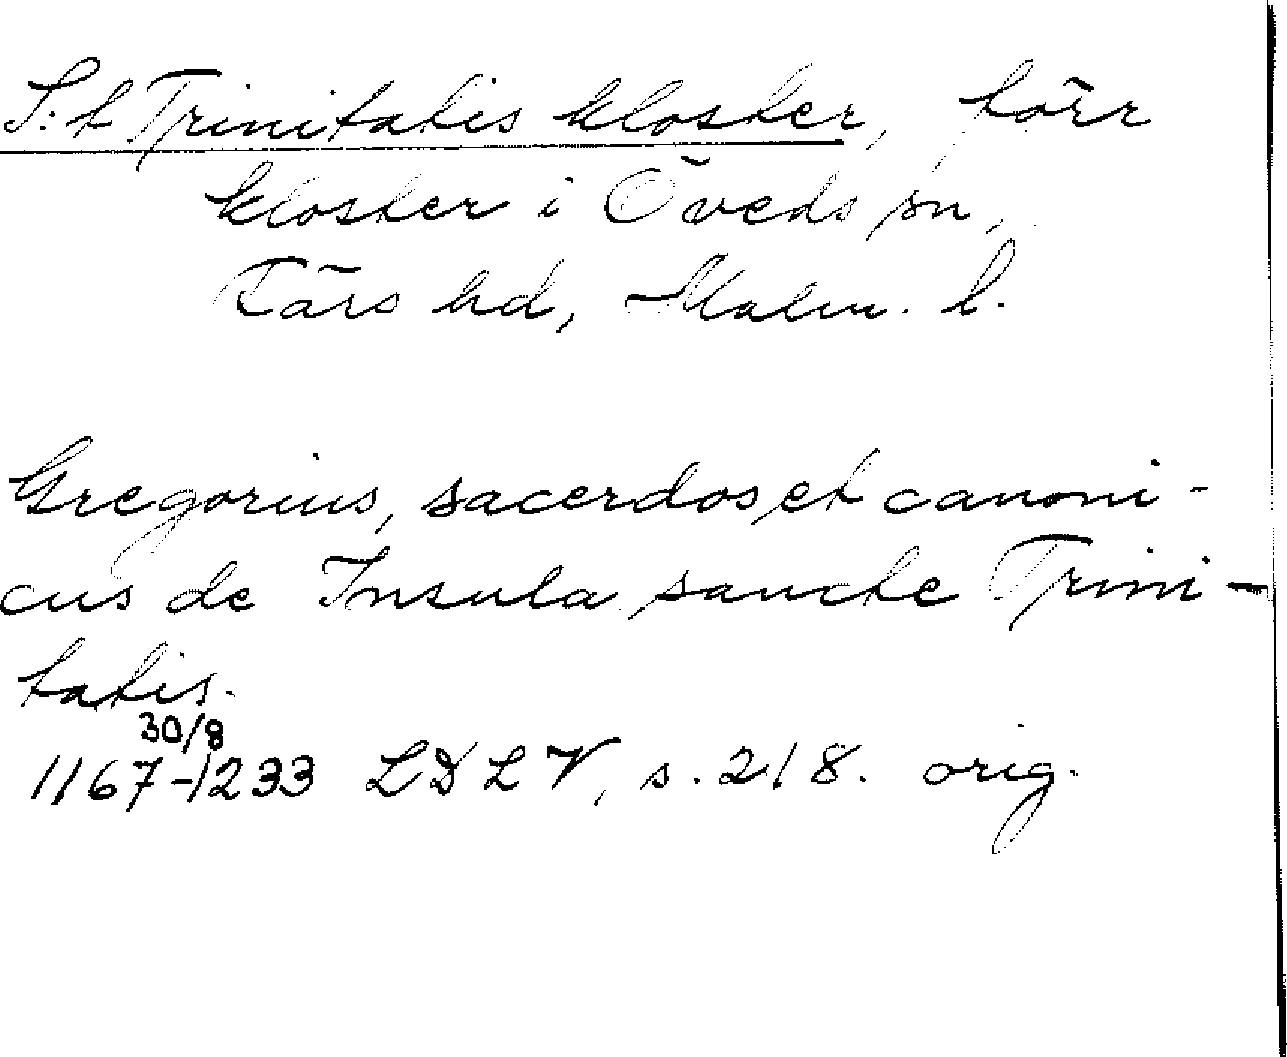 S:t Trinitatis kloster, förr
kloster i Öveds sn,
Färs hd, Malm. l.
Gregorius, sacerdos et canoni-
cus de Insula sancte Trini-
tatis.
30/8
1167-1233 LDLV, s. 218. orig.